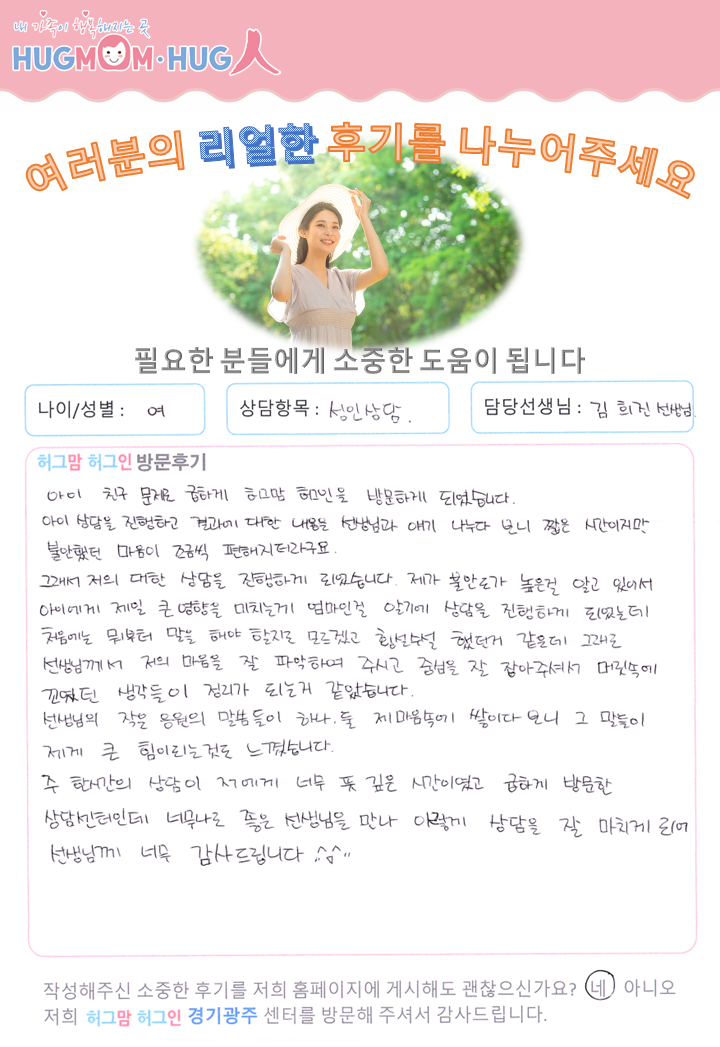 내 가족이 행복해지는 곳
HUGMOM·HUG人
여러분의 리얼한 후기를 나누어주세요
필요한 분들에게 소중한 도움이 됩니다
나이/성별 : 여
상담항목 : 성인상담.
담당선생님 : 김 희진 선생님
허그맘 허그인 방문후기
아이 친구 문제로 급하게 허그맘 허그인을 방문하게 되었습니다.
아이 상담을 진행하고 결과에 대한 내용을 선생님과 얘기 나누다 보니 짧은 시간이지만
불안했던 마음이 조금씩 편해지더라구요.
그래서 저의 대한 상담을 진행하게 되었습니다. 제가 불안도가 높은걸 알고 있어서
아이에게 제일 큰 영향을 미치는게 엄마인걸 알기에 상담을 진행하게 되었는데
처음에는 뭐부터 말을 해야 할지도 모르겠고 횡설수설 했던거 같은데 그래도
선생님께서 저의 마음을 잘 파악하여 주시고 중심을 잘 잡아주셔서 머릿속에
꼬였던 생각들이 정리가 되는거 같았습니다.
선생님의 작은 응원의 말씀들이 하나.둘 제마음속에 쌓이다 보니 그 말들이
제게 큰 힘이되는것도 느꼈습니다.
주 한시간의 상담이 저에게 너무 뜻 깊은 시간이였고 급하게 방문한
상담센터인데 너무나도 좋은 선생님을 만나 이렇게 상담을 잘 마치게 되어
선생님께 너무 감사드립니다 ^^
작성해주신 소중한 후기를 저희 홈페이지에 게시해도 괜찮으신가요? 네 아니오
저희 허그맘 허그인 경기광주 센터를 방문해 주셔서 감사드립니다.